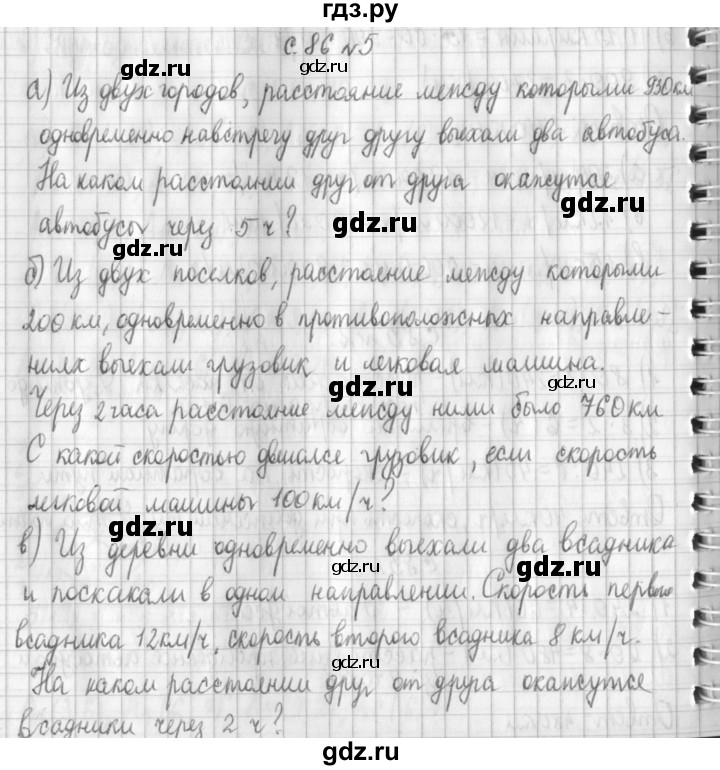 гдз.ру
с. 86 №5
gdz.ru
gdz.ru
а) Из двух городов, расстояние между которыми 930 км
gdz.ru
gdz.ru
одновременно навстречу друг другу выехали два автобуса.
На каком расстоянии друг от друга окажутся
gdz.ru
автобусы через 5 ч?
gdz.ru
gdz.ru
б) Из двух поселков, расстояние между которыми
200 км, одновременно в противоположных направле-
ниях выехали грузовик и легковая машина.
gdz.ru
gdz.ru
Через 2 часа расстояние между ними было 760 км
С какой скоростью двигался грузовик, если скорость
легковой машины 100 км/ч?
gdz.ru
в) Из деревни одновременно выехали два всадника
gdz.ru
gdz.ru
и поскакали в одном направлении. Скорость первого
всадника 12 км/ч, скорость второго всадника 8 км/ч.
gdz.ru
На каком расстоянии друг от друга окажутся
всадники через 2 ч?
gdz.ru